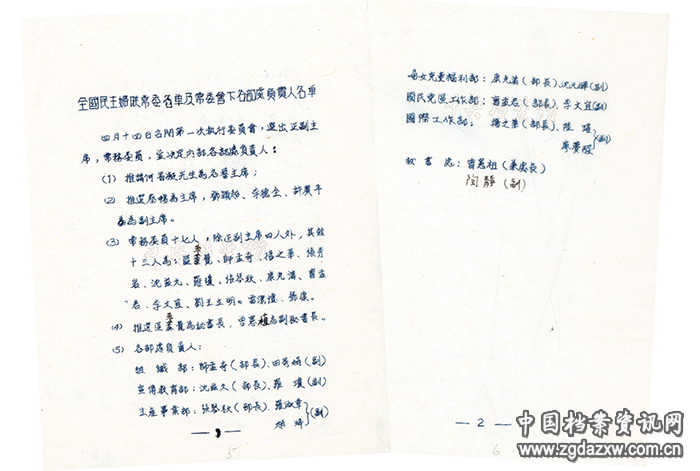 全國民主婦联常委名单及常委會下各部處負責人名单
四月十四日召開第一次執行委員會，選出正副主
席，常務委員，並决定内部各部處負責人：
(1) 推請何香凝先生為名譽主席；
(2) 推選蔡暢為主席，鄧穎超、李德全、許廣平
為副主席。
(3) 常務委員十七人，除正副主席四人外，其餘
十三人為：區夢覺、帥孟奇、楊之華、張芳
君、沈兹九、羅瓊、張琴秋、康克清、曹孟
君、李文宜、劉王立明、雷潔瓊、
(4) 推選區夢覺為秘書長，曾憲植為副秘書長。
(5) 各部處負責人：
組織部：帥孟奇(部長)、田秀娟(副)
宣傳教育部：沈兹久(部長)、羅瓊(副)
生產事業部：張琴秋(部長)、羅淑章
(副)
婦女兒童福利部：康克清(部長)、沈元暉(副)
國民党區工作部：曹孟君(部長)、李文宜(副)
國際工作部：楊之華(部長)、陸璀
(副)
秘書處：曾憲植(兼處長)
陶靜(副)
— 2 —
5
6
中国档案资讯网
www.zgdazxw.com.cn